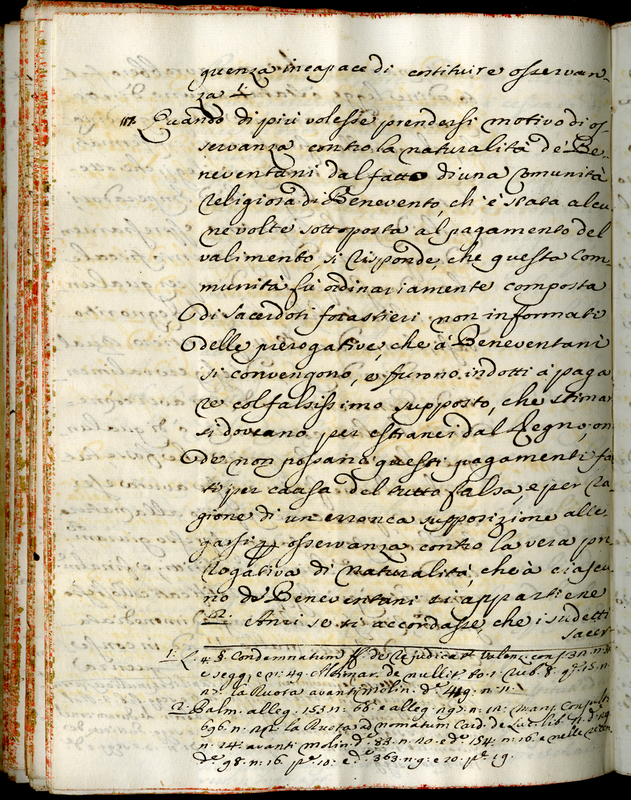 quenza incapace di costituire osservan-
za 1.
117. Quando di più volesse prendersi motivo di os-
servanza contro la naturalità de' Be-
neventani dal fatto di una Comunità
Religiosa di Benevento, ch' è stata alcu-
ne volte sottoposta al pagamento del
valimento si risponde, che questa Com-
munità fù ordinariamente composta
di sacerdoti forastieri non informati
delle pierogative, che à Beneventani
si convengono, e furono indotti à paga
re col falsissimo supposto, che stimar
si doveano per estranei dal Regno, on
de non possano questi pagamenti fa
ti per causa del tutto falsa, e per ra
gione di un erronea supposizione alle
garsi per osservanza contro la vera pre
rogativa di naturalità, che à ciascu
no de' Beneventani si appartiene
2. Anzi se si accordasse, che i sudetti
sacer
1. L. 4. §. Condemnatum ff. de Re judicat. Valenz. cons. 3. n.
e segg. e n. 49. de nullit. to. 1. Rub. 8. n.
n. 21. la Ruota avanti Molin. n. 11.
2. Palm. alleg. 153. n. 68. e alleg. n. 12.
696. n. la Ruota Card. de
n. 14. avanti Molin. d. 83. n. 20. e d. 154. n. 16. e nelle
d. 98. n. 16. p. 10. e d. 363. n. 9. e 20. p. 19.